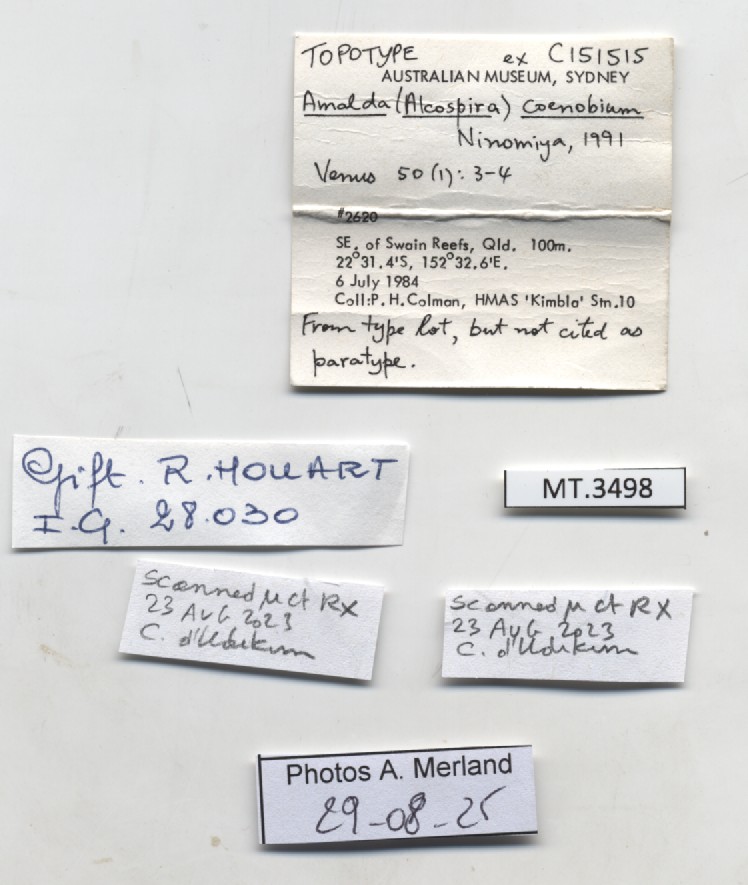 TOPOTYPE ex C151515
AUSTRALIAN MUSEUM, SYDNEY
Amalda (Alcospira) coenobium
Ninomiya, 1991
Venus 50 (1): 3-4
#2620
SE. of Swain Reefs, Qld. 100m.
22°31.4'S, 152°32.6'E.
6 July 1984
Coll:P.H.Colman, HMAS 'Kimbla' Stn.10
From type lot, but not cited as
paratype.
Gift. R. HOUART
I.G. 28.030
MT.3498
Scanned μ ct RX
23 AUG 2023
C. d'Udekem
Scanned μ ct RX
23 AUG 2023
C. d'Udekem
Photos A. Merland
29-08-25